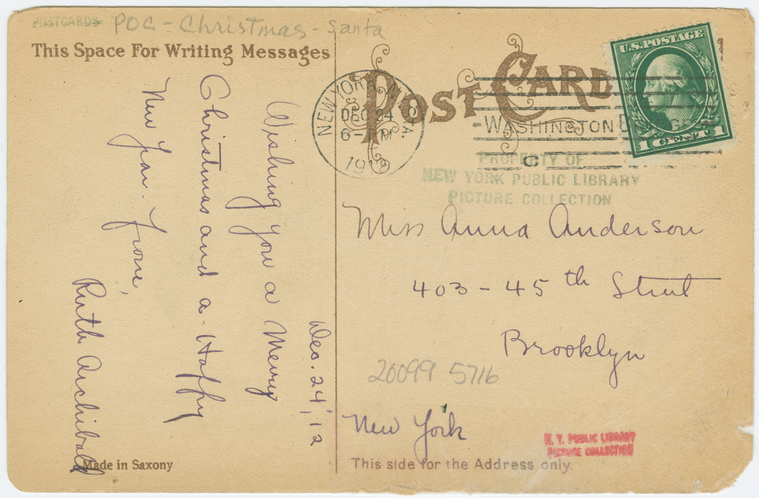 POSTCARDS POC - Christmas - Santa
This Space For Writing Messages
POST CARD
U.S. POSTAGE
1 CENT 1
NEW YORK
STA.
DEC 24
6-PM
191
WASHINGTON
C
PROPERTY OF
NEW YORK PUBLIC LIBRARY
PICTURE COLLECTION
Dec. 24, '12
Wishing you a Merry
Christmas and a Happy
New Year. From,
Ruth Archibald
Miss Anna Anderson
403-45th Street
Brooklyn
New York
20099 5716
N. Y. PUBLIC LIBRARY
PICTURE COLLECTION
Made in Saxony
This side for the Address only.